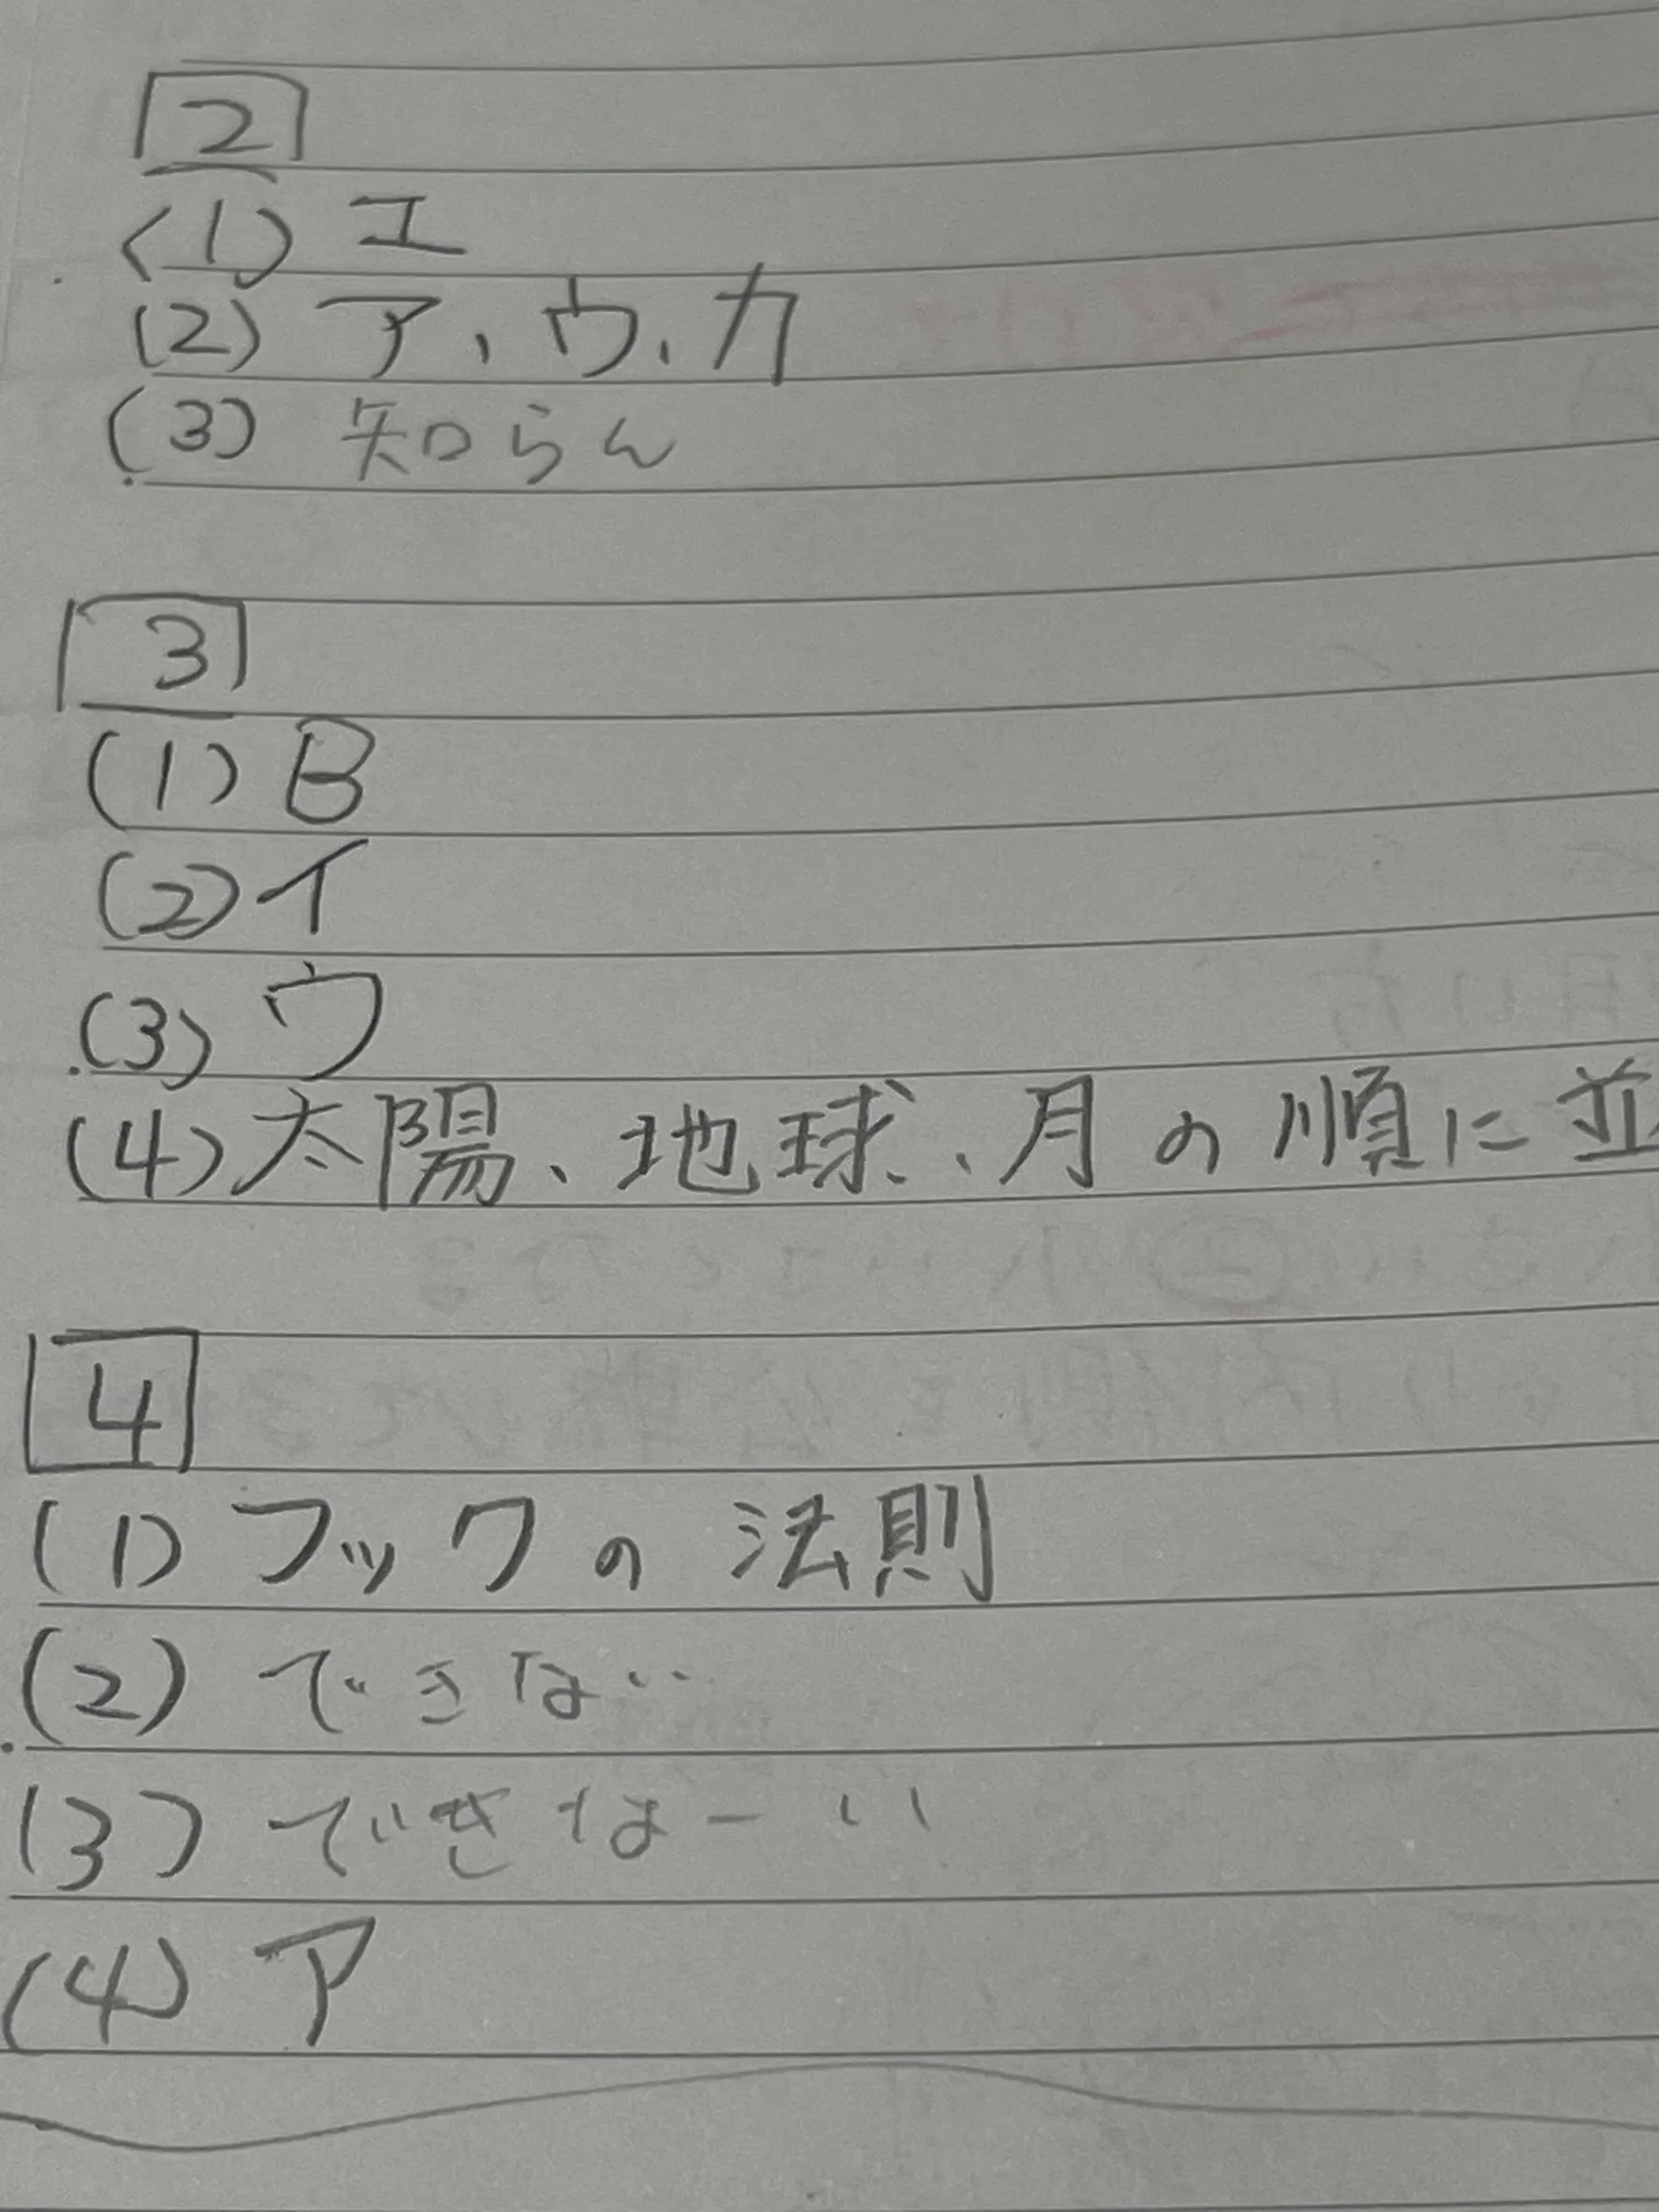 2
(1) エ
(2) ア、ウ、カ
(3) 知らん
3
(1) B
(2) イ
(3) ウ
(4) 太陽、地球、月の順に並
4
(1) フックの法則
(2) できない
(3) できなーい
(4) ア